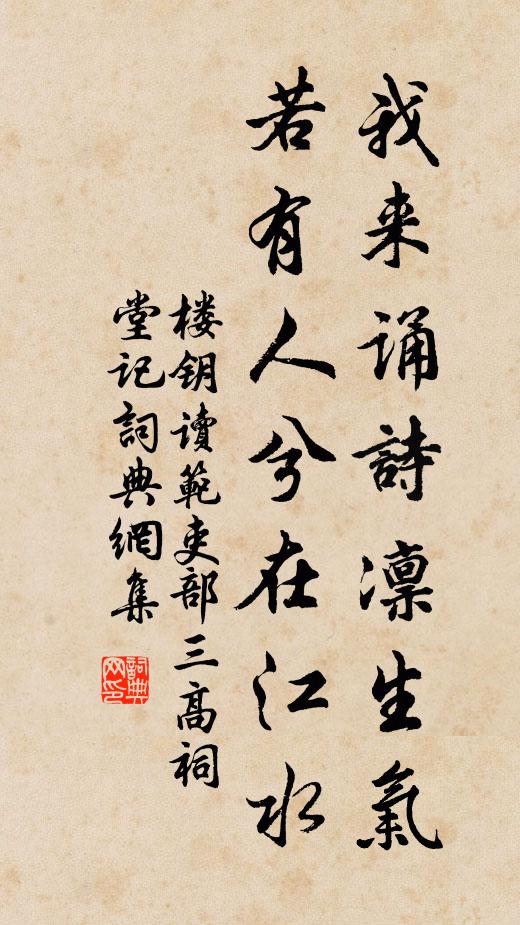 我来诵詩凛生氣
若有人兮在江水
楼钥讀範吏部三高祠
堂记詞典網集
詞典网印